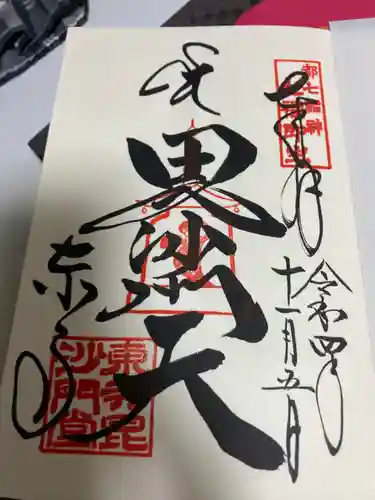 奉拝
都七福神
令和四年
十一月五日
毘沙門天
東寺
東寺毘
沙門堂